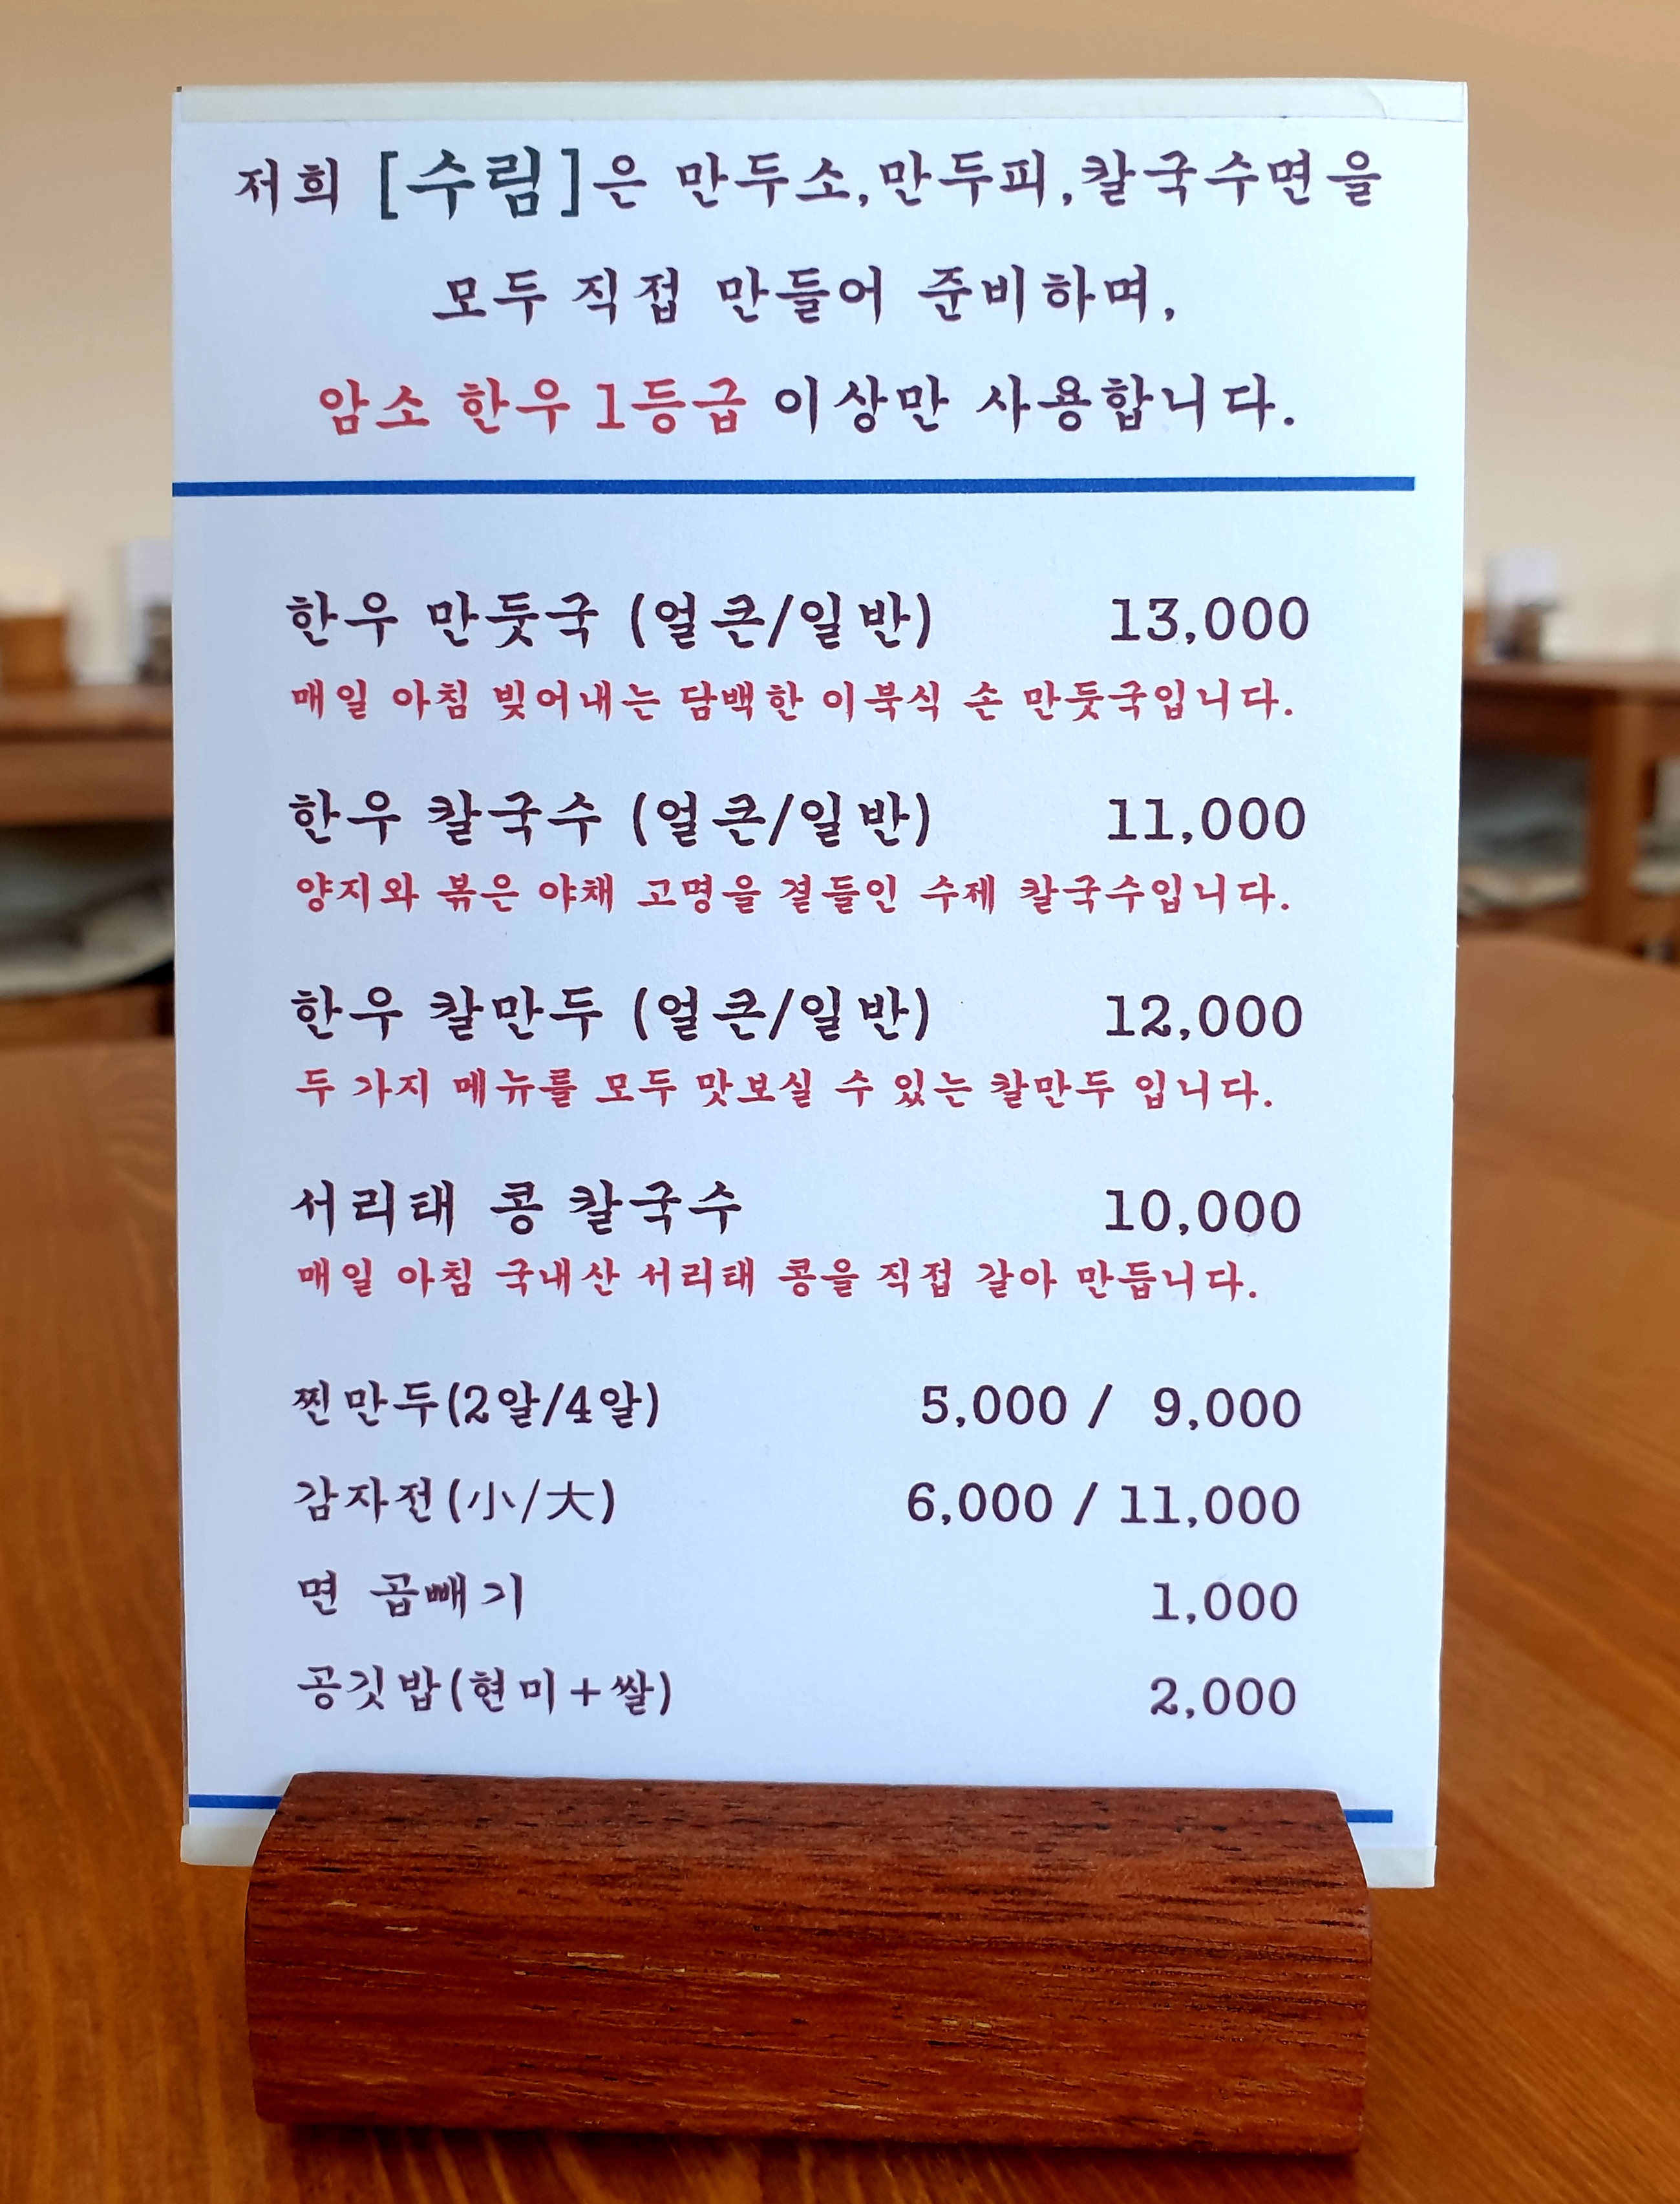 저희 [수림]은 만두소,만두피,칼국수면을
모두 직접 만들어 준비하며,
암소 한우 1등급 이상만 사용합니다.
한우 만둣국 (얼큰/일반) 13,000
매일 아침 빚어내는 담백한 이북식 손 만둣국입니다.
한우 칼국수 (얼큰/일반) 11,000
양지와 볶은 야채 고명을 곁들인 수제 칼국수입니다.
한우 칼만두 (얼큰/일반) 12,000
두 가지 메뉴를 모두 맛보실 수 있는 칼만두 입니다.
서리태 콩 칼국수 10,000
매일 아침 국내산 서리태 콩을 직접 갈아 만듭니다.
찐만두(2알/4알) 5,000 / 9,000
감자전(小/大) 6,000 / 11,000
면 곱빼기 1,000
공깃밥(현미+쌀) 2,000